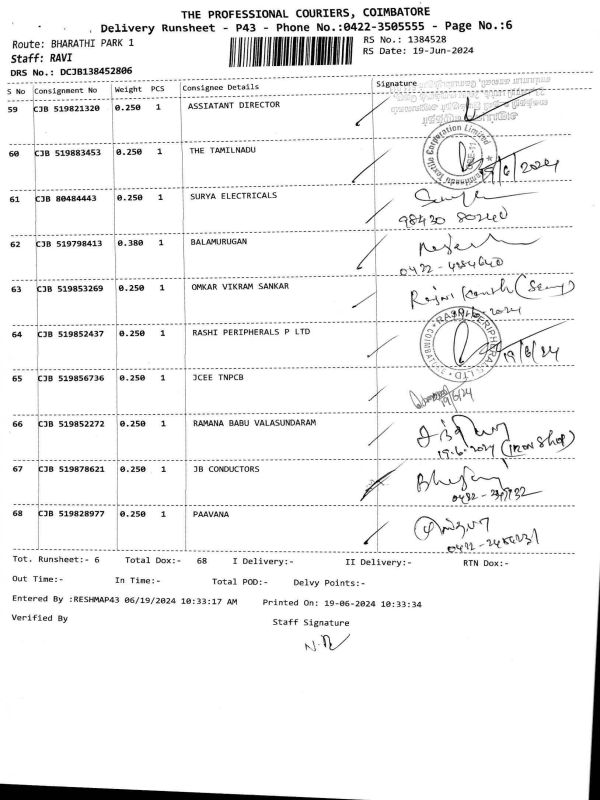 THE PROFESSIONAL COURIERS, COIMBATORE
Delivery Runsheet - P43 - Phone No.:0422-3505555 - Page No.:6
Route: BHARATHI PARK 1
RS No.: 1384528
Staff: RAVI
RS Date: 19-Jun-2024
DRS No.: DCJB138452806
S No Consignment No Weight PCS Consignee Details Signature
59 CJB 519821320 0.250 1 ASSIATANT DIRECTOR
60 CJB 519883453 0.250 1 THE TAMILNADU 19/6/2024
61 CJB 80484443 0.250 1 SURYA ELECTRICALS
98430 80240
62 CJB 519798413 0.380 1 BALAMURUGAN
0422-4384640
63 CJB 519853269 0.250 1 OMKAR VIKRAM SANKAR
64 CJB 519852437 0.250 1 RASHI PERIPHERALS P LTD
RASHI PERIPHERALS
19/6/24
65 CJB 519856736 0.250 1 JCEE TNPCB
19/6/24
66 CJB 519852272 0.250 1 RAMANA BABU VALASUNDARAM
19.6.2024 (IRON Shop)
67 CJB 519878621 0.250 1 JB CONDUCTORS
68 CJB 519828977 0.250 1 PAAVANA
Tot. Runsheet:- 6 Total Dox:- 68 I Delivery:- II Delivery:- RTN Dox:-
Out Time:- In Time:- Total POD:- Delvy Points:-
Entered By :RESHMAP43 06/19/2024 10:33:17 AM Printed On: 19-06-2024 10:33:34
Verified By Staff Signature